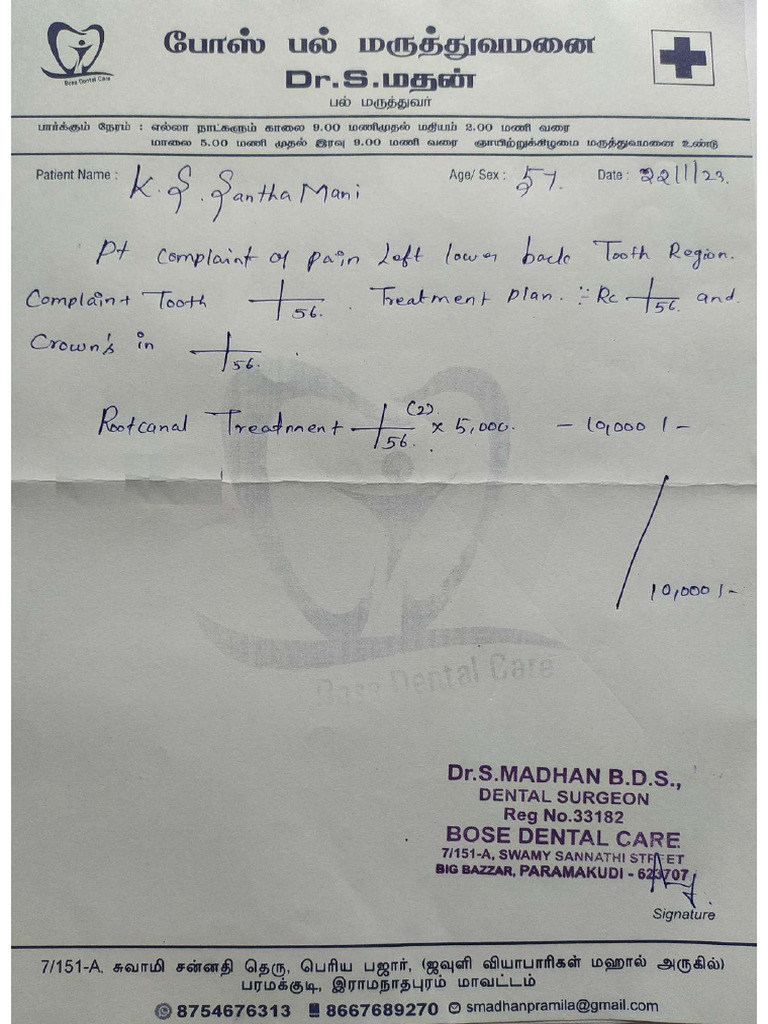 Bose Dental Care
போஸ் பல் மருத்துவமனை
Dr.S.மதன்
பல் மருத்துவர்
பார்க்கும் நேரம் : எல்லா நாட்களும் காலை 9.00 மணிமுதல் மதியம் 2.00 மணி வரை
மாலை 5.00 மணி முதல் இரவு 9.00 மணி வரை ஞாயிற்றுக்கிழமை மருத்துவமனை உண்டு
Patient Name : K. S. Santha Mani Age/ Sex : 57. Date : 22/1/23.
Pt Complaint of pain Left lower back Tooth Region.
Complaint Tooth 56. Treatment plan. :- Rc 56. and
Crown's in 56.
Rootcanal Treatment 56. (2). x 5,000. - 10,000/-
10,000/-
Bose Dental Care
Dr.S.MADHAN B.D.S.,
DENTAL SURGEON
Reg No.33182
BOSE DENTAL CARE
7/151-A, SWAMY SANNATHI STREET
BIG BAZZAR, PARAMAKUDI - 623707
Signature
7/151-A, சுவாமி சன்னதி தெரு, பெரிய பஜார், (ஜவுளி வியாபாரிகள் மஹால் அருகில்)
பரமக்குடி, இராமநாதபுரம் மாவட்டம்
8754676313 8667689270 smadhanpramila@gmail.com